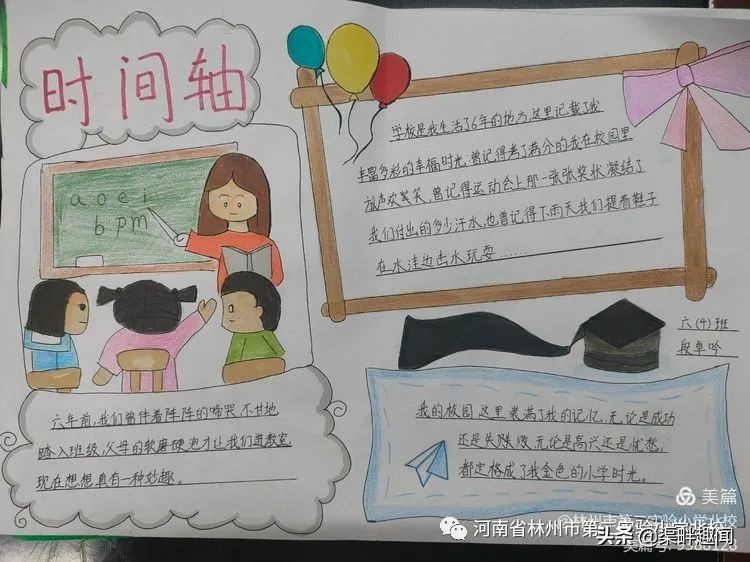 时间轴
a o e i
b p m
学校是我生活了6年的地方,这里记载了我
丰富多彩的幸福时光,曾记得考了满分的我在校园里
放声欢笑,曾记得运动会上那一张张奖状凝结了
我们付出的多少汗水,也曾记得下雨天我们提着鞋子
在水洼边击水玩耍……
六(4)班
段卓吟
六年前,我们曾伴着阵阵的啼哭,不甘地
踏入班级,父母的软磨硬泡才让我们进教室,
现在想想真有一种妙趣。
我的校园,这里装满了我的记忆,无论是成功
还是失败,无论是高兴还是忧愁,
都定格成了我金色的小学时光。
美篇
@林州市第二实验小学北校
河南省林州市第二实验小学
头条@渠畔趣闻
美篇号:9583123